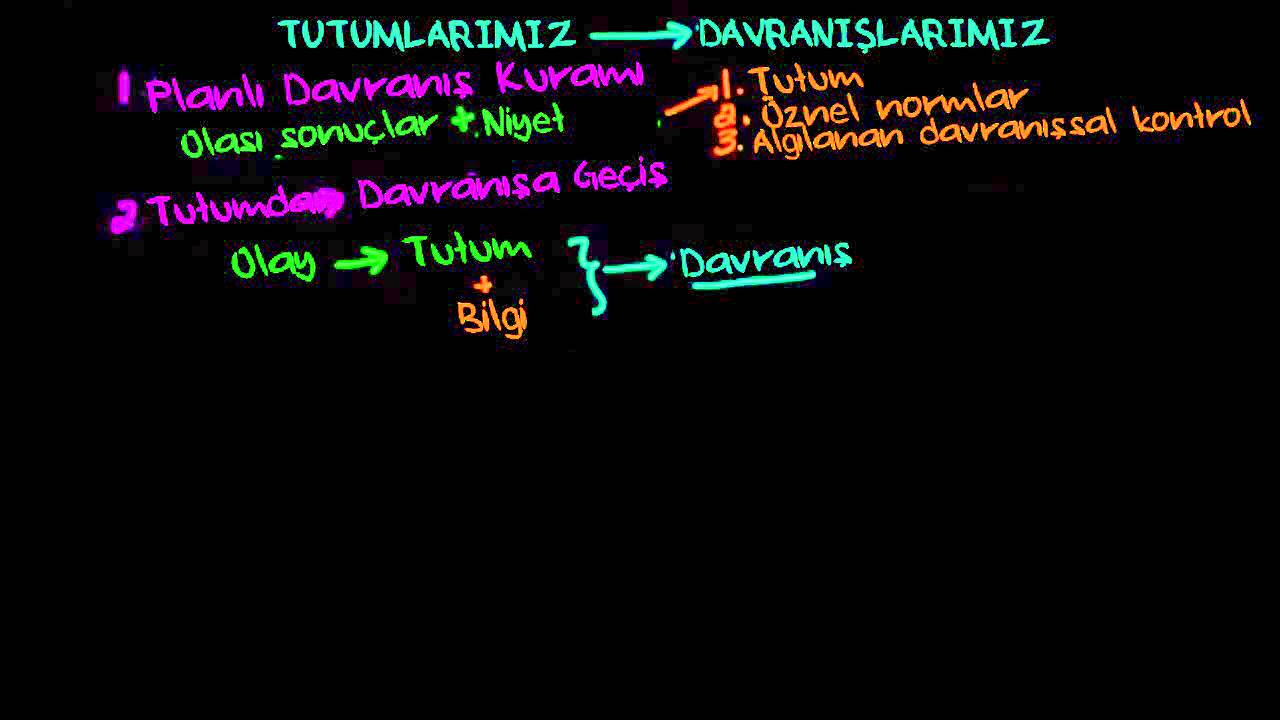 TUTUMLARIMIZ → DAVRANIŞLARIMIZ
1 Planlı Davranış Kuramı
Olası sonuçlar + Niyet → 1. Tutum
2. Öznel normlar
3. Algılanan davranışsal kontrol
2 Tutumdan Davranışa Geçiş
Olay → Tutum } → Davranış
+
Bilgi